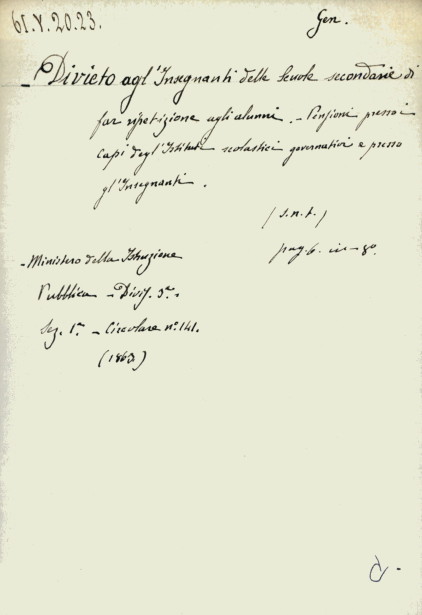 61.V.20.23.
Gen.
- Divieto agl'Insegnanti delle Scuole secondarie di
far ripetizione agli alunni. - Pensioni presso i
capi degl'Istituti scolastici governativi e presso
gl'Insegnanti.
(s.n.t.)
pag. 6. in-8º.
- Ministero della Istruzione
Pubblica - Divis. 3ª -
Sez. 1ª - Circolare nº 141.
(1863)